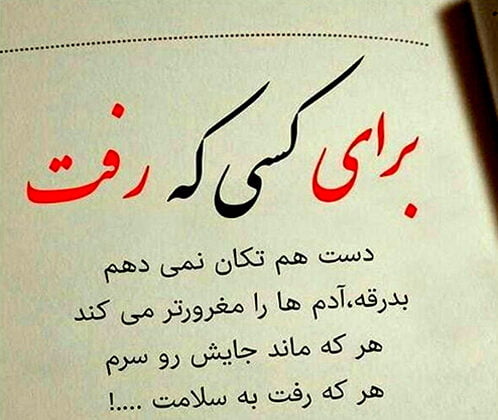 برای کسی که رفت
دست هم تکان نمی دهم
بدرقه،آدم ها را مغرورتر می کند
هر که ماند جایش رو سرم
هر که رفت به سلامت ....!